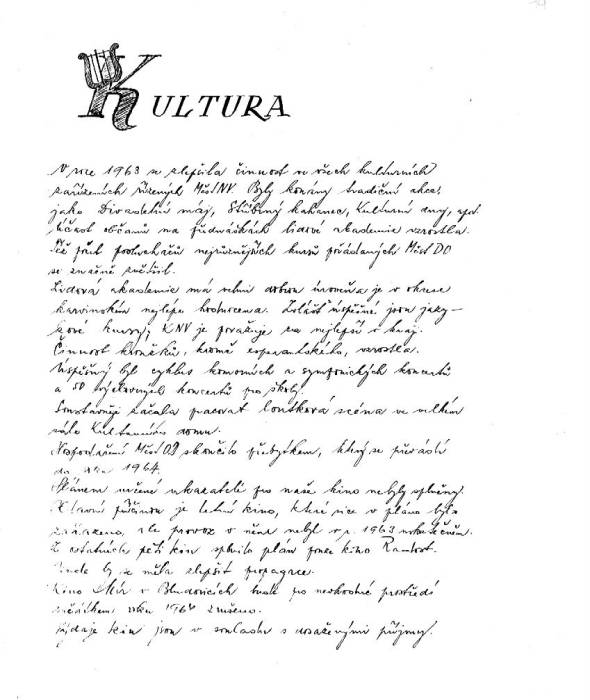 KULTURA
V roce 1963 se zlepšila činnost ve všech kulturních
zařízeních řízených MěstNV. Byly konány tradiční akce,
jako Divadelní máj, Stříbrný kahanec, Kulturní dny, apod.
Účast občanů na přednáškách lidové akademie vzrostla.
Též počet posluchačů nejrůznějších kursů pořádaných Měst DO
se značně zvětšil.
Lidová akademie má velmi dobrou úroveň a je v okrese
karvinském nejlépe hodnocena. Zvlášť úspěšné jsou jazy-
kové kursy; KNV je považuje za nejlepší v kraji.
Činnost kroužků, kromě esperantského, vzrostla.
Úspěšný byl cyklus komorních a symfonických koncertů
a 50 výchovných koncertů pro školy.
začala pracovat loutková scéna ve velkém
sále Kulturního domu.
Hospodaření Měst OB skončilo přebytkem, který se převádí
do roku 1964.
Plánem určení ukazatelé pro naše kino nebyly splněny.
Hlavní příčinou je letní kino, které sice v plánu bylo
zařazeno, ale provoz v něm nebyl v r. 1963 uskutečněn.
Z ostatních pěti kin splnilo plán pouze kino Radost.
by se měla zlepšit propagace.
Kino Mír v Bludovicích bude po nevhodné prostředí
začátkem roku 1964 zrušeno.
Výdaje kin jsou v souladu s dosaženými příjmy.